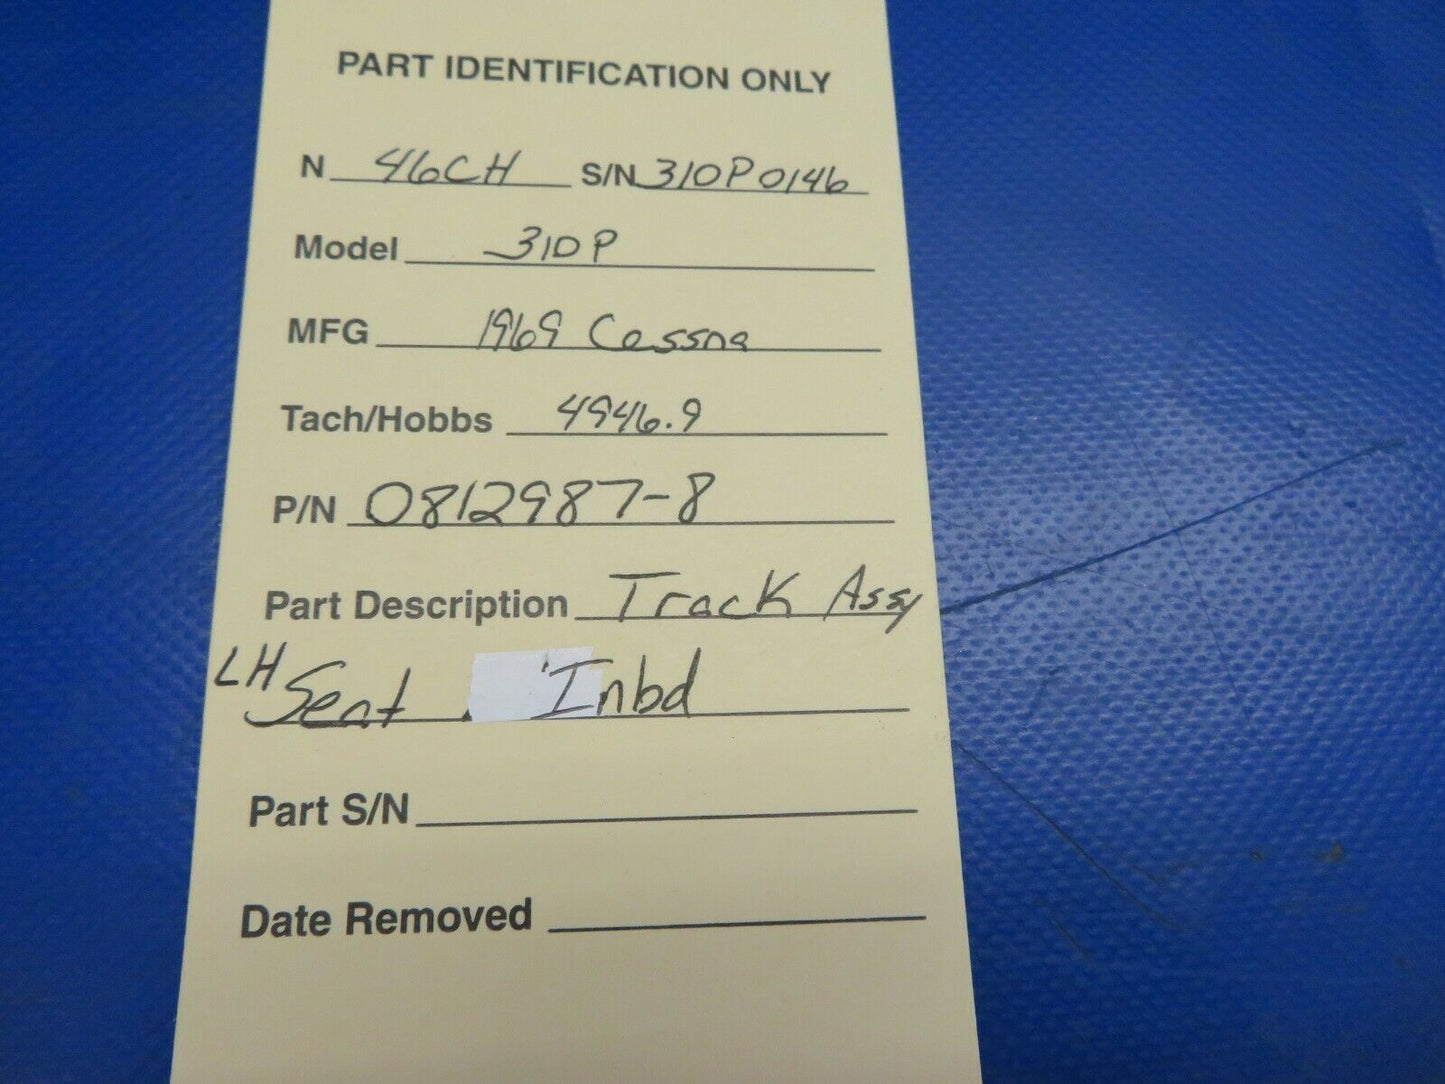 PART IDENTIFICATION ONLY
N 46CH S/N 310P0146
Model 310P
MFG 1969 Cessna
Tach/Hobbs 4946.9
P/N 0812987-8
Part Description Track Assy
LH Seat Inbd
Part S/N
Date Removed